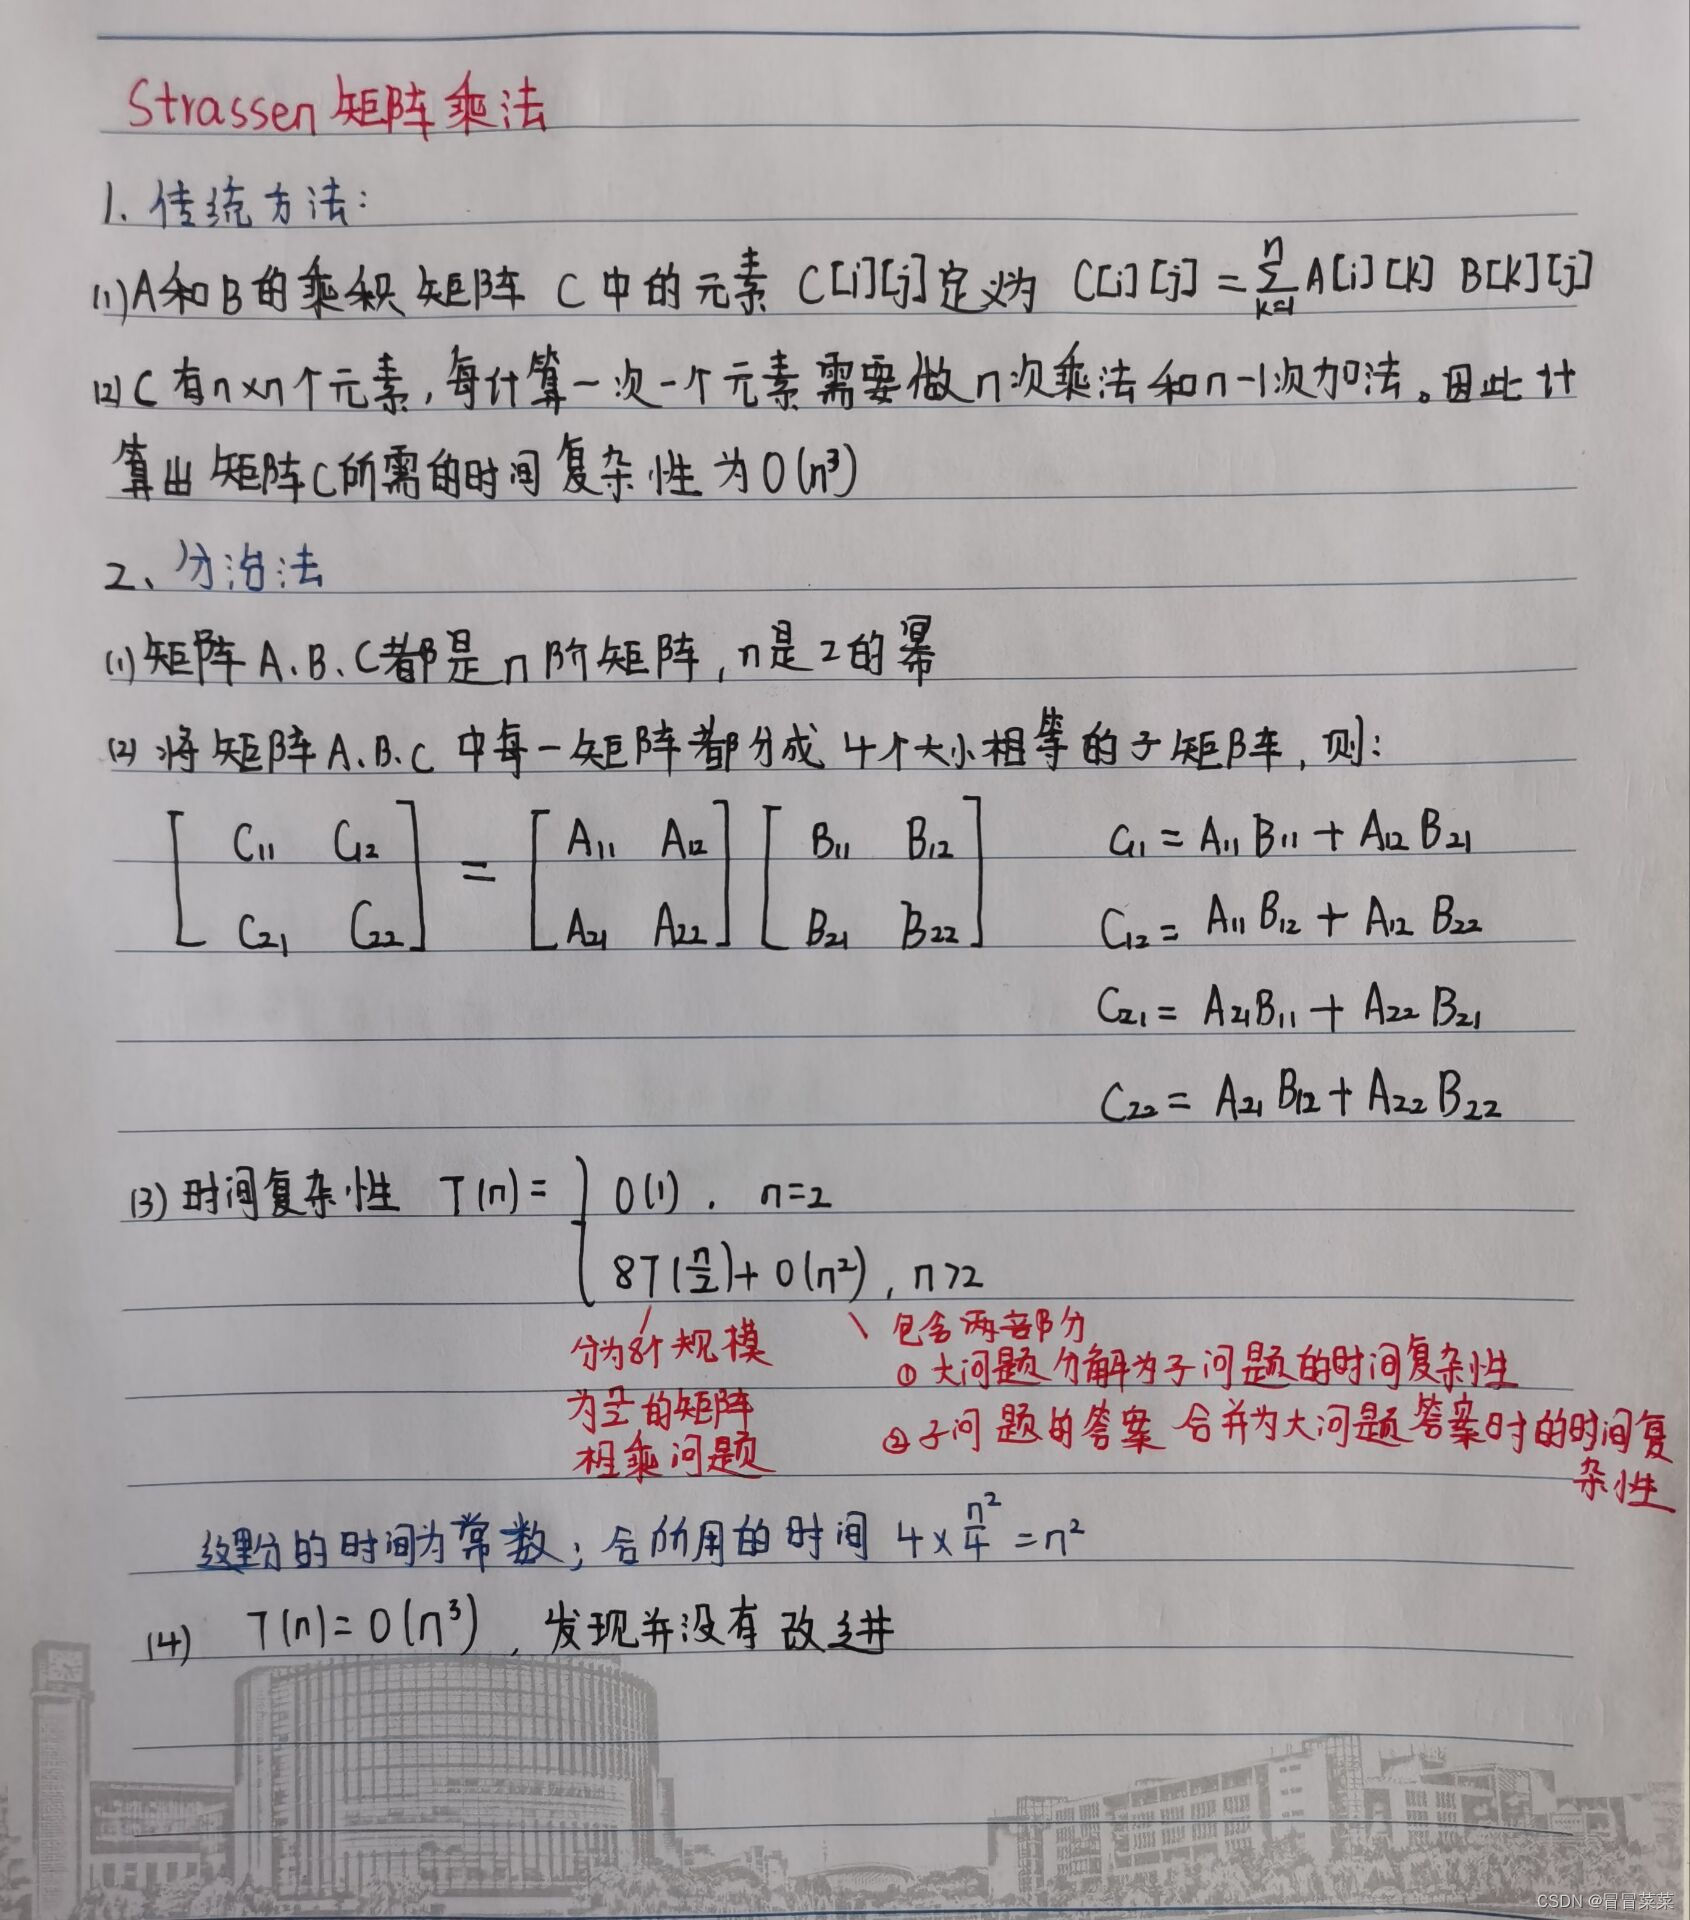 Strassen 矩阵乘法
1. 传统方法:
(1) A和B的乘积矩阵 C 中的元素 C[i][j]定义为 C[i][j] = \sum_{k=1}^{n} A[i][k] B[k][j]
(2) C 有n×n个元素, 每计算一次一个元素需要做n次乘法和n-1次加法。因此计
算出矩阵C所需的时间复杂性为O(n³)
2、分治法
(1) 矩阵 A、B、C都是 n 阶矩阵, n是2的幂
(2) 将矩阵A、B、C 中每一矩阵都分成 4个大小相等的子矩阵, 则:
[C₁₁ C₁₂; C₂₁ C₂₂] = [A₁₁ A₁₂; A₂₁ A₂₂] [B₁₁ B₁₂; B₂₁ B₂₂]
C₁₁ = A₁₁ B₁₁ + A₁₂ B₂₁
C₁₂ = A₁₁ B₁₂ + A₁₂ B₂₂
C₂₁ = A₂₁ B₁₁ + A₂₂ B₂₁
C₂₂ = A₂₁ B₁₂ + A₂₂ B₂₂
(3) 时间复杂性 T(n) = { O(1), n=2
8T(n/2) + O(n²), n>2
分为8个规模
为n/2的矩阵
相乘问题
包含两部分
① 大问题分解为子问题的时间复杂性
② 子问题的答案合并为大问题答案时的时间复
杂性
这里分的时间为常数; 合所用的时间 4×n²/4 = n²
(4) T(n) = O(n³), 发现并没有改进
CSDN @冒冒菜菜